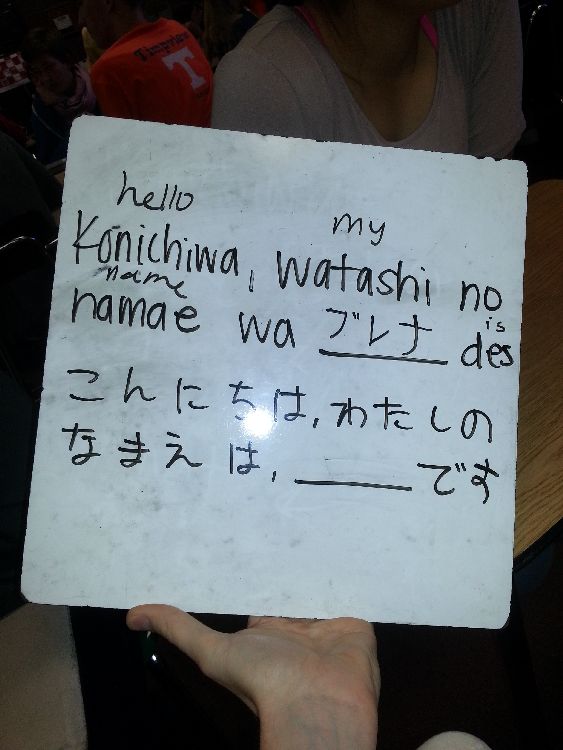 Timpview
T
hello
my
Konichiwa, watashi no
name
is
namae wa ブレナ des
こんにちは, わたしの
なまえは, ______ です